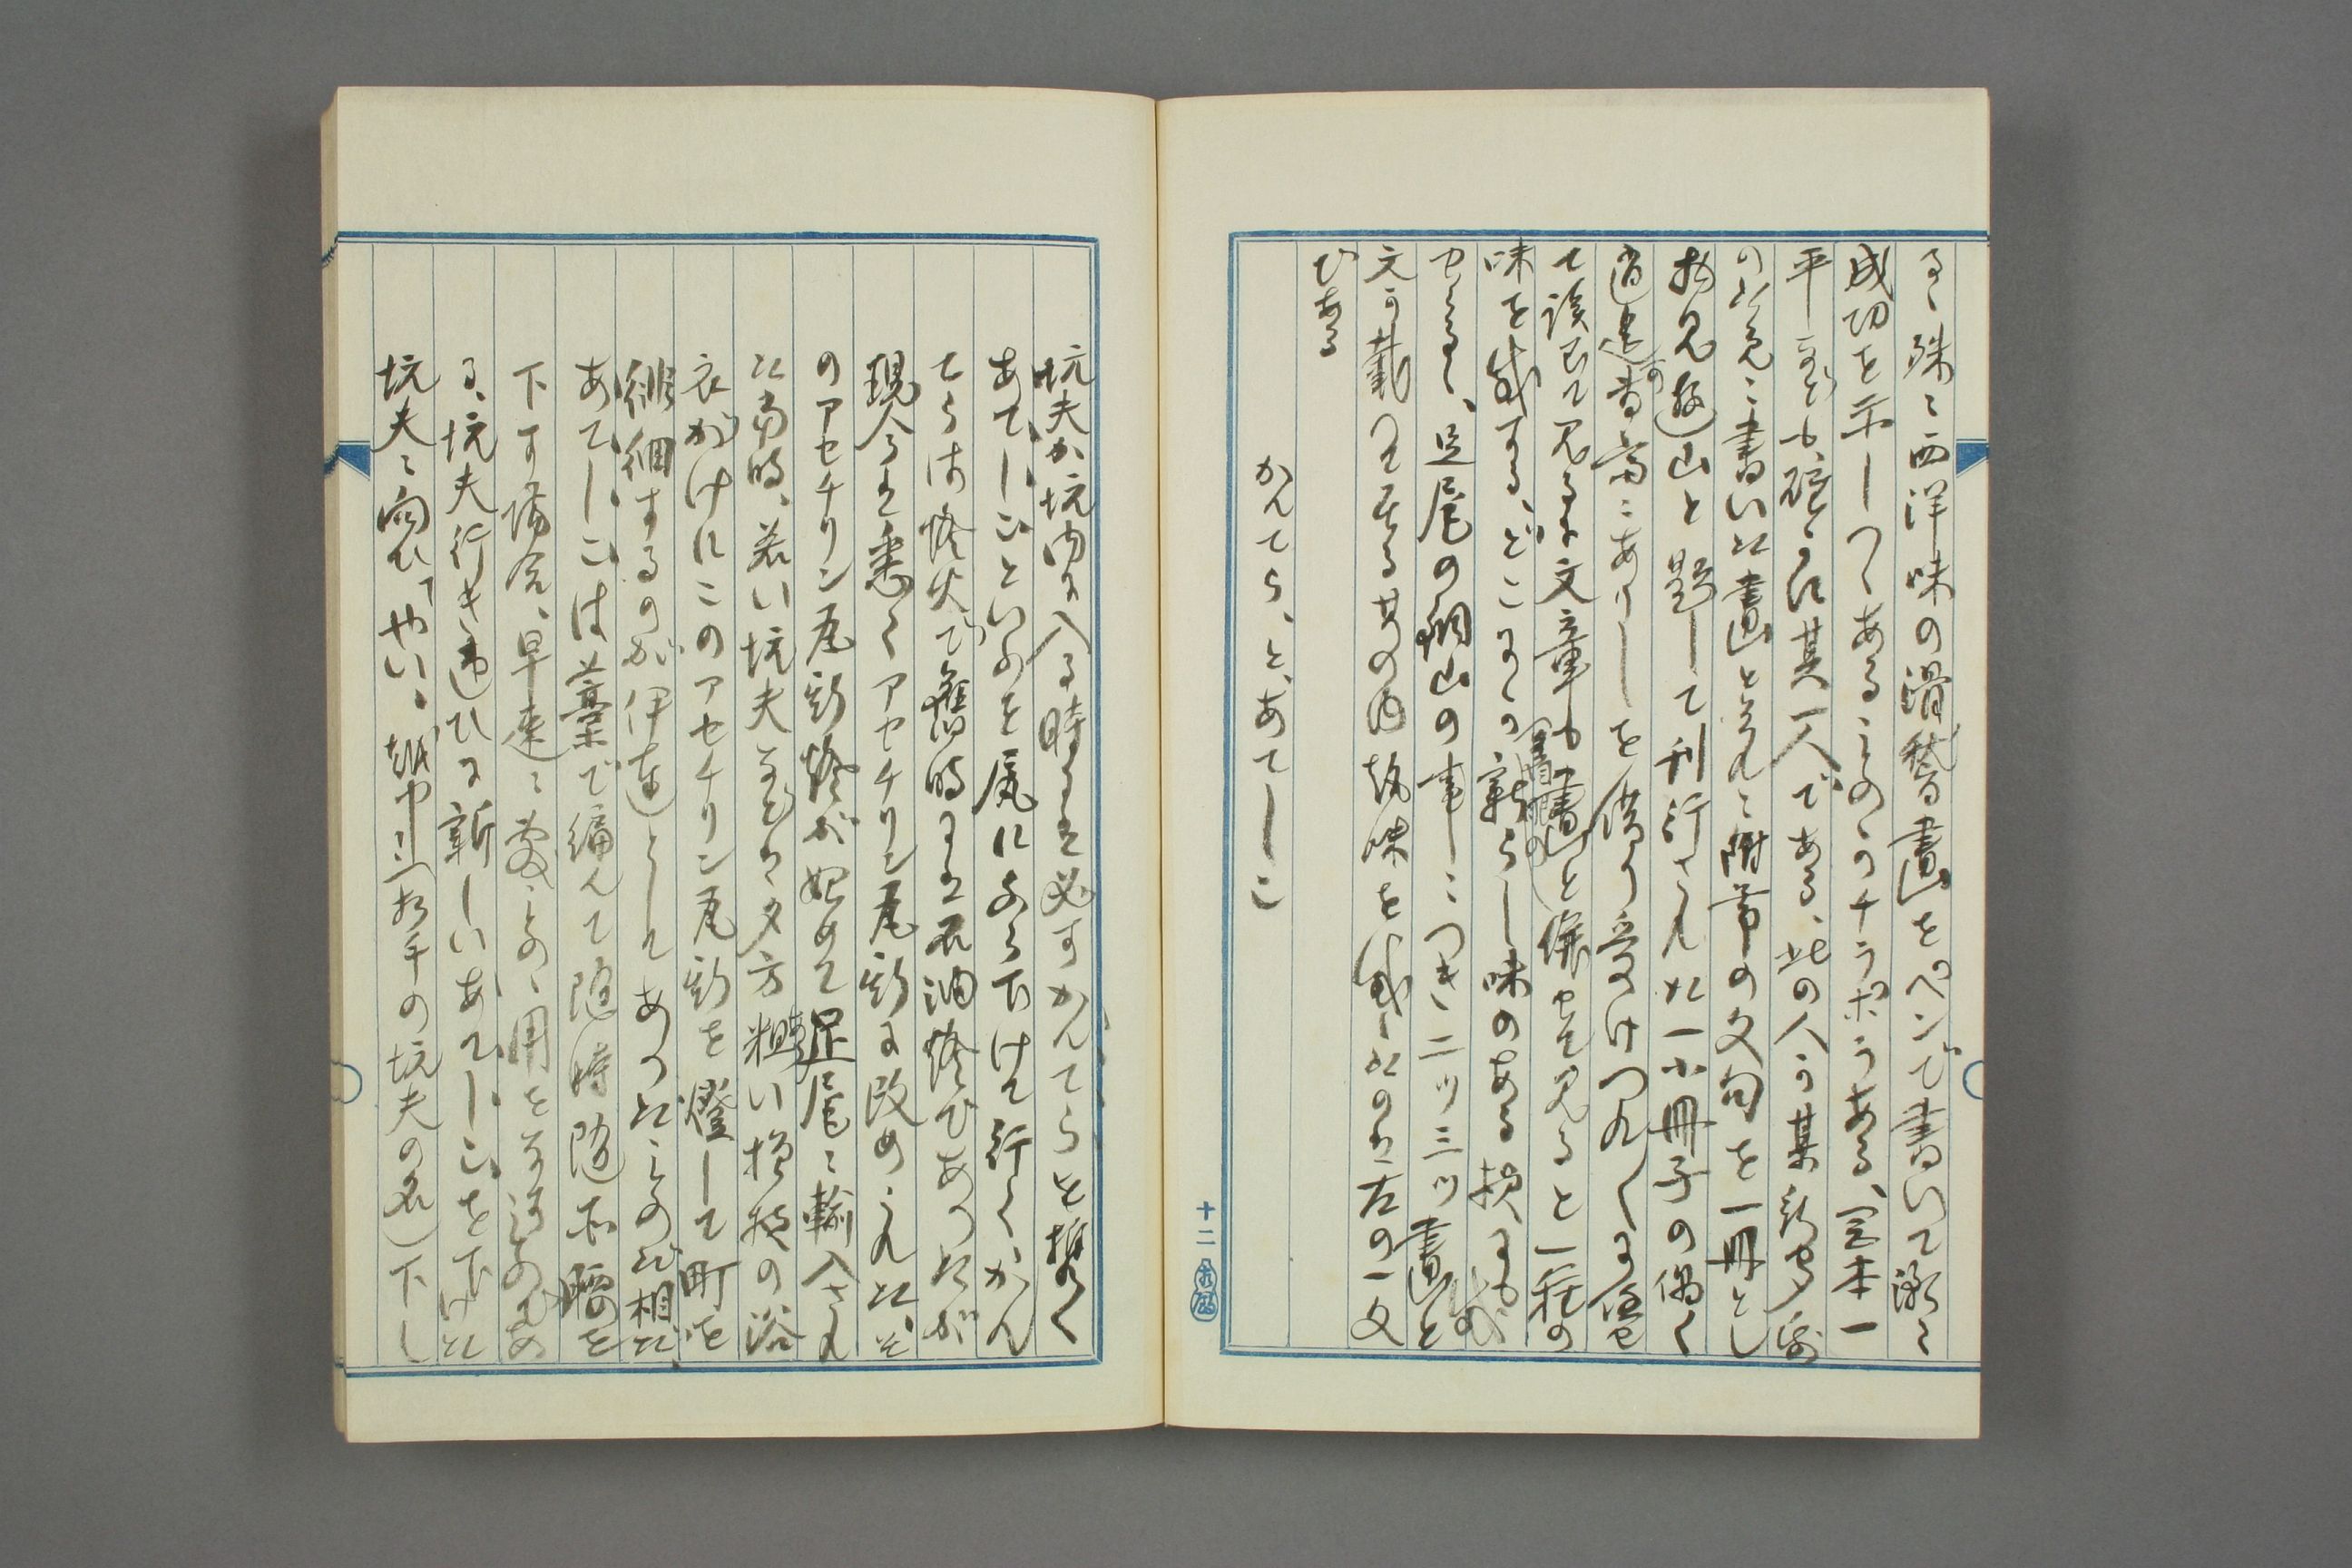 る、殊に西洋味の滑稽畫をペンで書いて漸く
成功を示しつゝあるものゝチラホラある、宮本一
平なども確に其一人である、此の人が某新聞
の為めに書いた畫とそれに附帯の文句を一冊とし
物見遊山と題して刊行された一小冊子の偶〻
逍遥の書齋にありしを借り受けつれ〲のまゝ
て讀で見るに文章も畫と併せて見ると一種の
味を感ずる、どこまでも新らし味のある
せらる、足尾の銅山の事につき二ツ三ツ畫と
文が載せてある其の内趣味を感じたのは左の一文
である
かんてら、と、あてしこ
坑夫が坑内に入る時には必ずかんてらを携へ
あてしこといふを尻にぶら下げて行くかん
てらは燈火で舊時には石油燈であつたが
現今は悉くアセチリン瓦斯に改められた、そ
のアセチリン瓦斯燈が始めて足尾に輸入され
た當時、若い坑夫などは夕方粗い模様の浴
衣がけにこのアセチリン瓦斯を燈して町を
徘徊するのが伊達としてあつたものだ相だ、
あてしこは藁で編んで随時随所腰を
下す場合、早速に敷ものゝ用をなすのであ
る、坑夫行き違ひに新しいあてしこを下げた
坑夫に向ひ「やい、越中(相手の坑夫の名)下し
十二